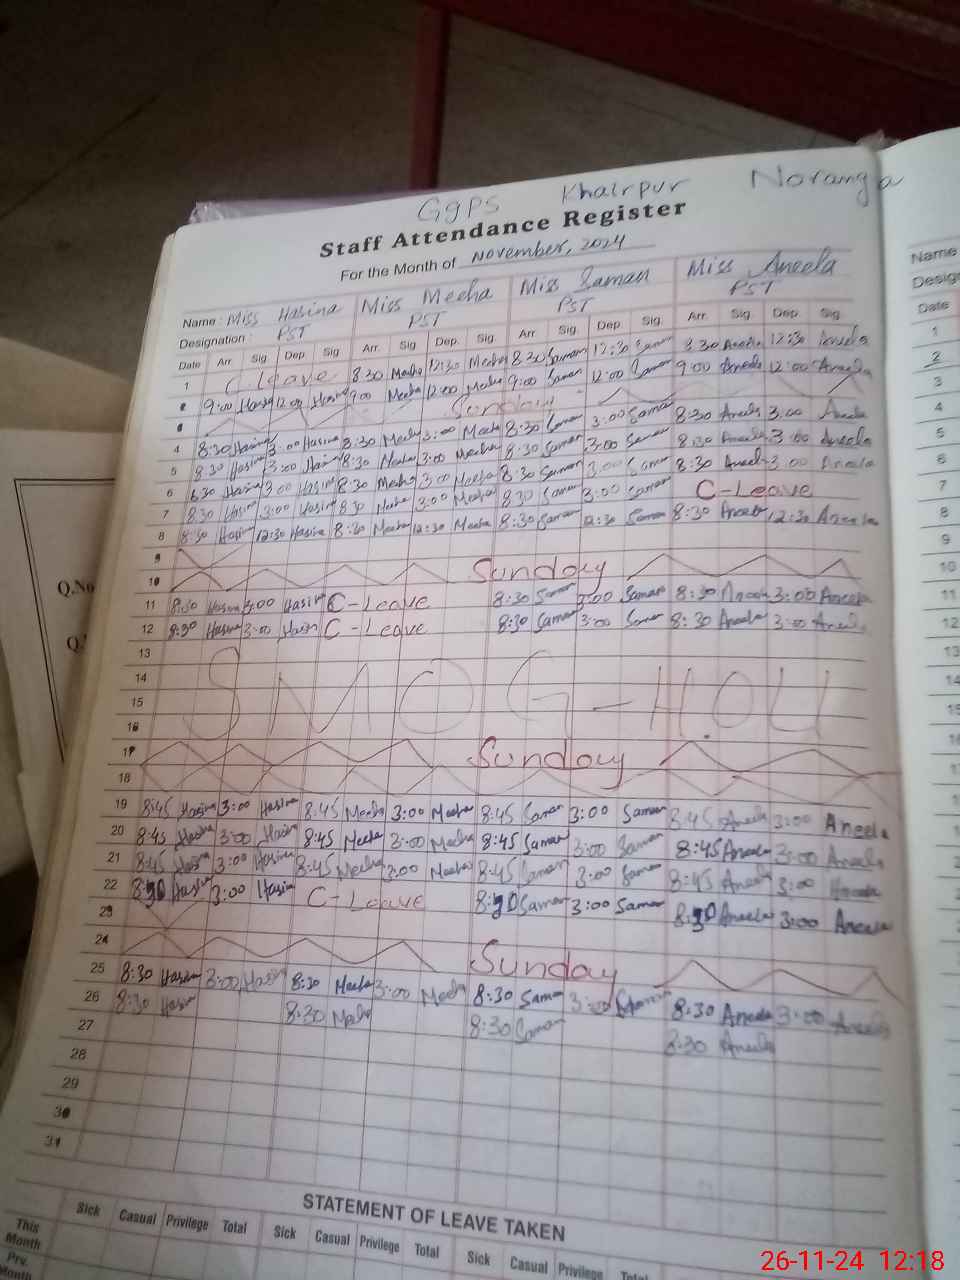 GgPS Khairpur Noranga
Staff Attendance Register
For the Month of November, 2024
Name : Miss Hasina Miss Meeha Miss Saman Miss Aneela
Designation : PST PST PST PST
Date Arr. Sig. Dep. Sig. Arr. Sig. Dep. Sig. Arr. Sig. Dep. Sig. Arr. Sig. Dep. Sig.
1 C Leave 8 30 Meeha 12:30 Meeha 8 30 Saman 12:30 Saman 8 30 Aneela 12:30 Aneela
2 9:00 Hasina 12:00 Hasina 9:00 Meeha 12:00 Meeha 9:00 Saman 12:00 Saman 9:00 Aneela 12:00 Aneela
Sunday
4 8:30 Hasina 3:00 Hasina 8:30 Meeha 3:00 Meeha 8:30 Saman 3:00 Saman 8:30 Aneela 3:00 Aneela
5 8:30 Hasina 3:00 Hasina 8:30 Meeha 3:00 Meeha 8:30 Saman 3:00 Saman 8:30 Aneela 3:00 Aneela
6 8:30 Hasina 3:00 Hasina 8:30 Meeha 3:00 Meeha 8:30 Saman 3:00 Saman 8:30 Aneela 3:00 Aneela
7 8:30 Hasina 3:00 Hasina 8:30 Meeha 3:00 Meeha 8:30 Saman 3:00 Saman C-Leave
8 8:30 Hasina 12:30 Hasina 8:30 Meeha 12:30 Meeha 8:30 Saman 12:30 Saman 8:30 Aneela 12:30 Aneela
9
10 Sunday
11 8:30 Hasina 3:00 Hasina C-Leave 8:30 Saman 3:00 Saman 8:30 Aneela 3:00 Aneela
12 8:30 Hasina 3:00 Hasina C-Leave 8:30 Saman 3:00 Saman 8:30 Aneela 3:00 Aneela
13
14 SMOG-HOLI
15
16
17 Sunday
18
19 8:45 Hasina 3:00 Hasina 8:45 Meeha 3:00 Meeha 8:45 Saman 3:00 Saman 8:45 Aneela 3:00 Aneela
20 8:45 Hasina 3:00 Hasina 8:45 Meeha 3:00 Meeha 8:45 Saman 3:00 Saman 8:45 Aneela 3:00 Aneela
21 8:45 Hasina 3:00 Hasina 8:45 Meeha 3:00 Meeha 8:45 Saman 3:00 Saman 8:45 Aneela 3:00 Aneela
22 8:30 Hasina 3:00 Hasina C-Leave 8:30 Saman 3:00 Saman 8:30 Aneela 3:00 Aneela
23
24 Sunday
25 8:30 Hasina 3:00 Hasina 8:30 Meeha 3:00 Meeha 8:30 Saman 3:00 Saman 8:30 Aneela 3:00 Aneela
26 8:30 Hasina 8:30 Meeha 8:30 Saman 8:30 Aneela
27
28
29
30
31
STATEMENT OF LEAVE TAKEN
Sick Casual Privilege Total Sick Casual Privilege Total Sick Casual Privilege Total
This Month
Prv. Month
Name
Date
1
2
3
4
5
6
7
8
9
10
11
12
13
14
Q.No
26-11-24 12:18